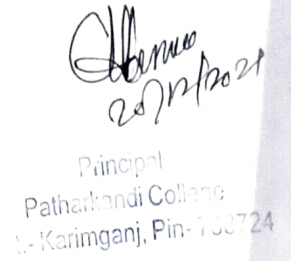 20/12/2021
Principal
Patharkandi College
Karimganj, Pin- 788724